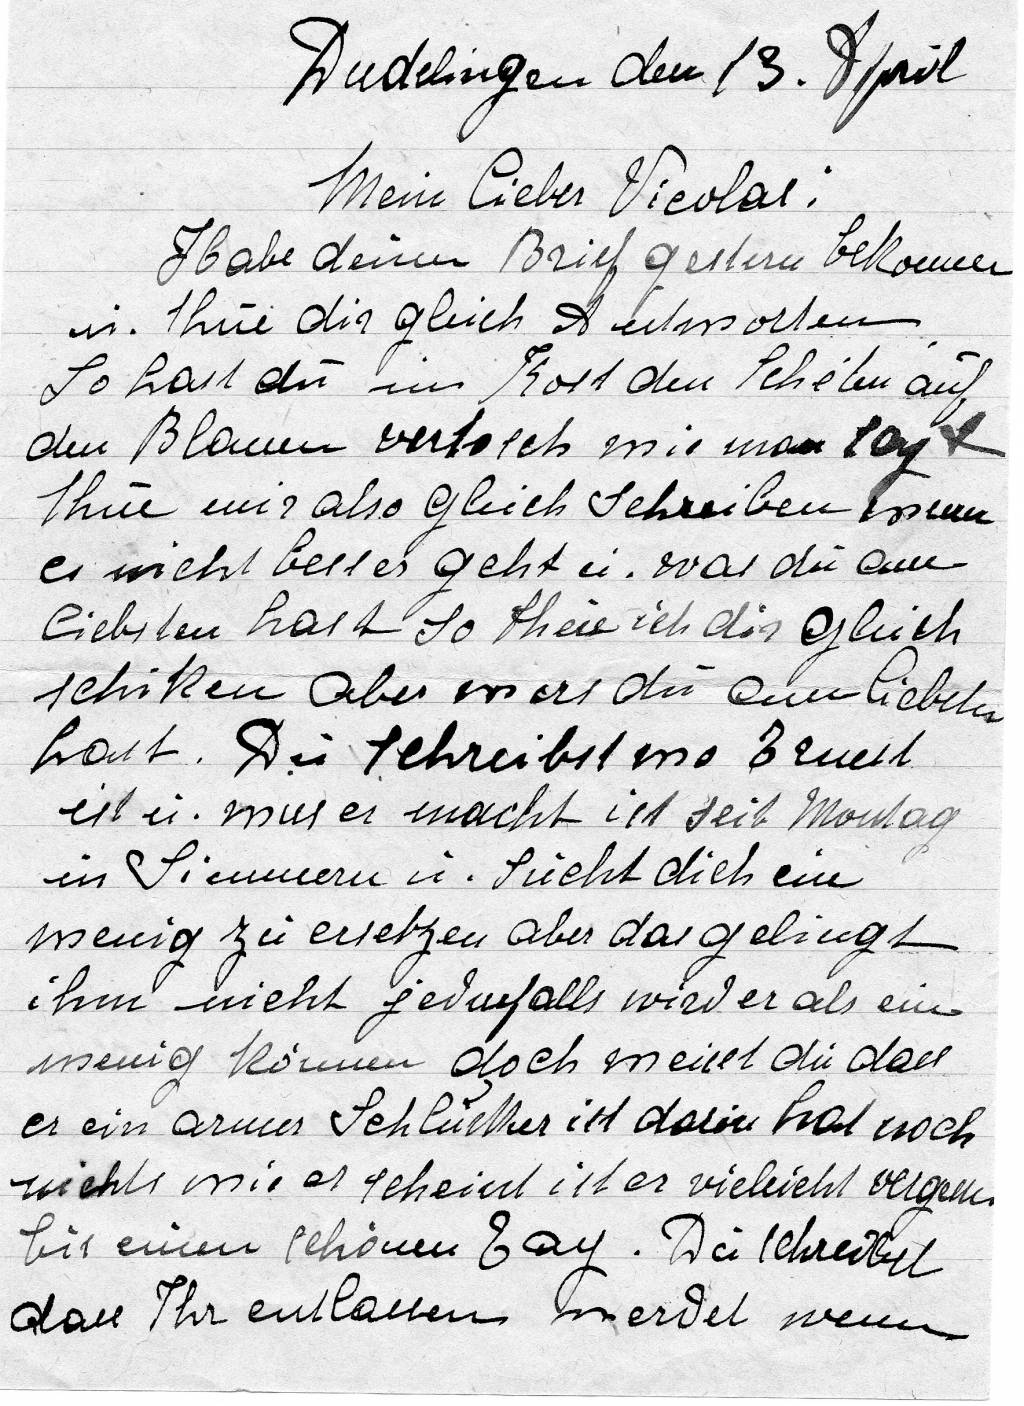 Dudelingen den 13. April
Mein lieber Nicolas!
Habe deinen Brief gestern bekommen
u. thue dir gleich Antworten
So hast du im Kost den Schelen auf
den Blauen vertosch wie man sagt
thue mir also gleich schreiben wenn
es nicht besser geht u. was du am
liebsten hast so thue ich dir gleich
schiken aber was du am liebsten
hast. Du schreibst wo Ernest
ist u. was er macht ist seit Montag
in Simmern u. sucht dich ein
wenig zu ersetzen aber das gelingt
ihm nicht jedenfalls wird er als ein
wenig können doch weisst du dass
er ein armer Schlücker ist darin hat noch
nichts wie es scheint ist er vieleicht vergessen
bis einen schönen Tag. Du schreibst
dass Ihr entlassen werdet wenn